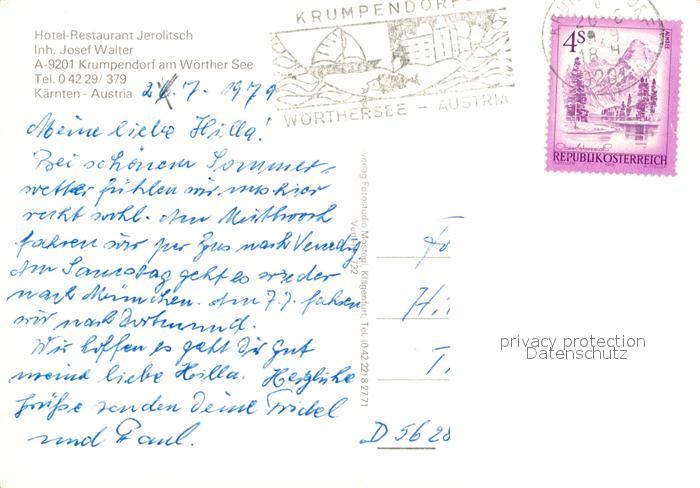 Hotel-Restaurant Jerolitsch
Inh. Josef Walter
A-9201 Krumpendorf am Wörther See
Tel. 0 42 29/ 379
Kärnten - Austria
7. 1979
Meine liebe Hilla!
Bei schönem Sommer-
wetter fühlen wir uns hier
recht wohl. Am Mittwoch
fahren wir per Bus nach Venedig
Am Samstag geht es wieder
nach München. Am 7.7. fahren
wir nach Dortmund.
Wir hoffen es geht Dir gut
meine liebe Hilla. Herzliche
Grüße senden Deine Friedel
und Paul.
KRUMPENDORF
WÖRTHERSEE - AUSTRIA
4S
ALMSEE
REPUBLIK ÖSTERREICH
Klagenfurt, Tel. (0 42 22) 8 27 71
D 56 28
privacy protection
Datenschutz